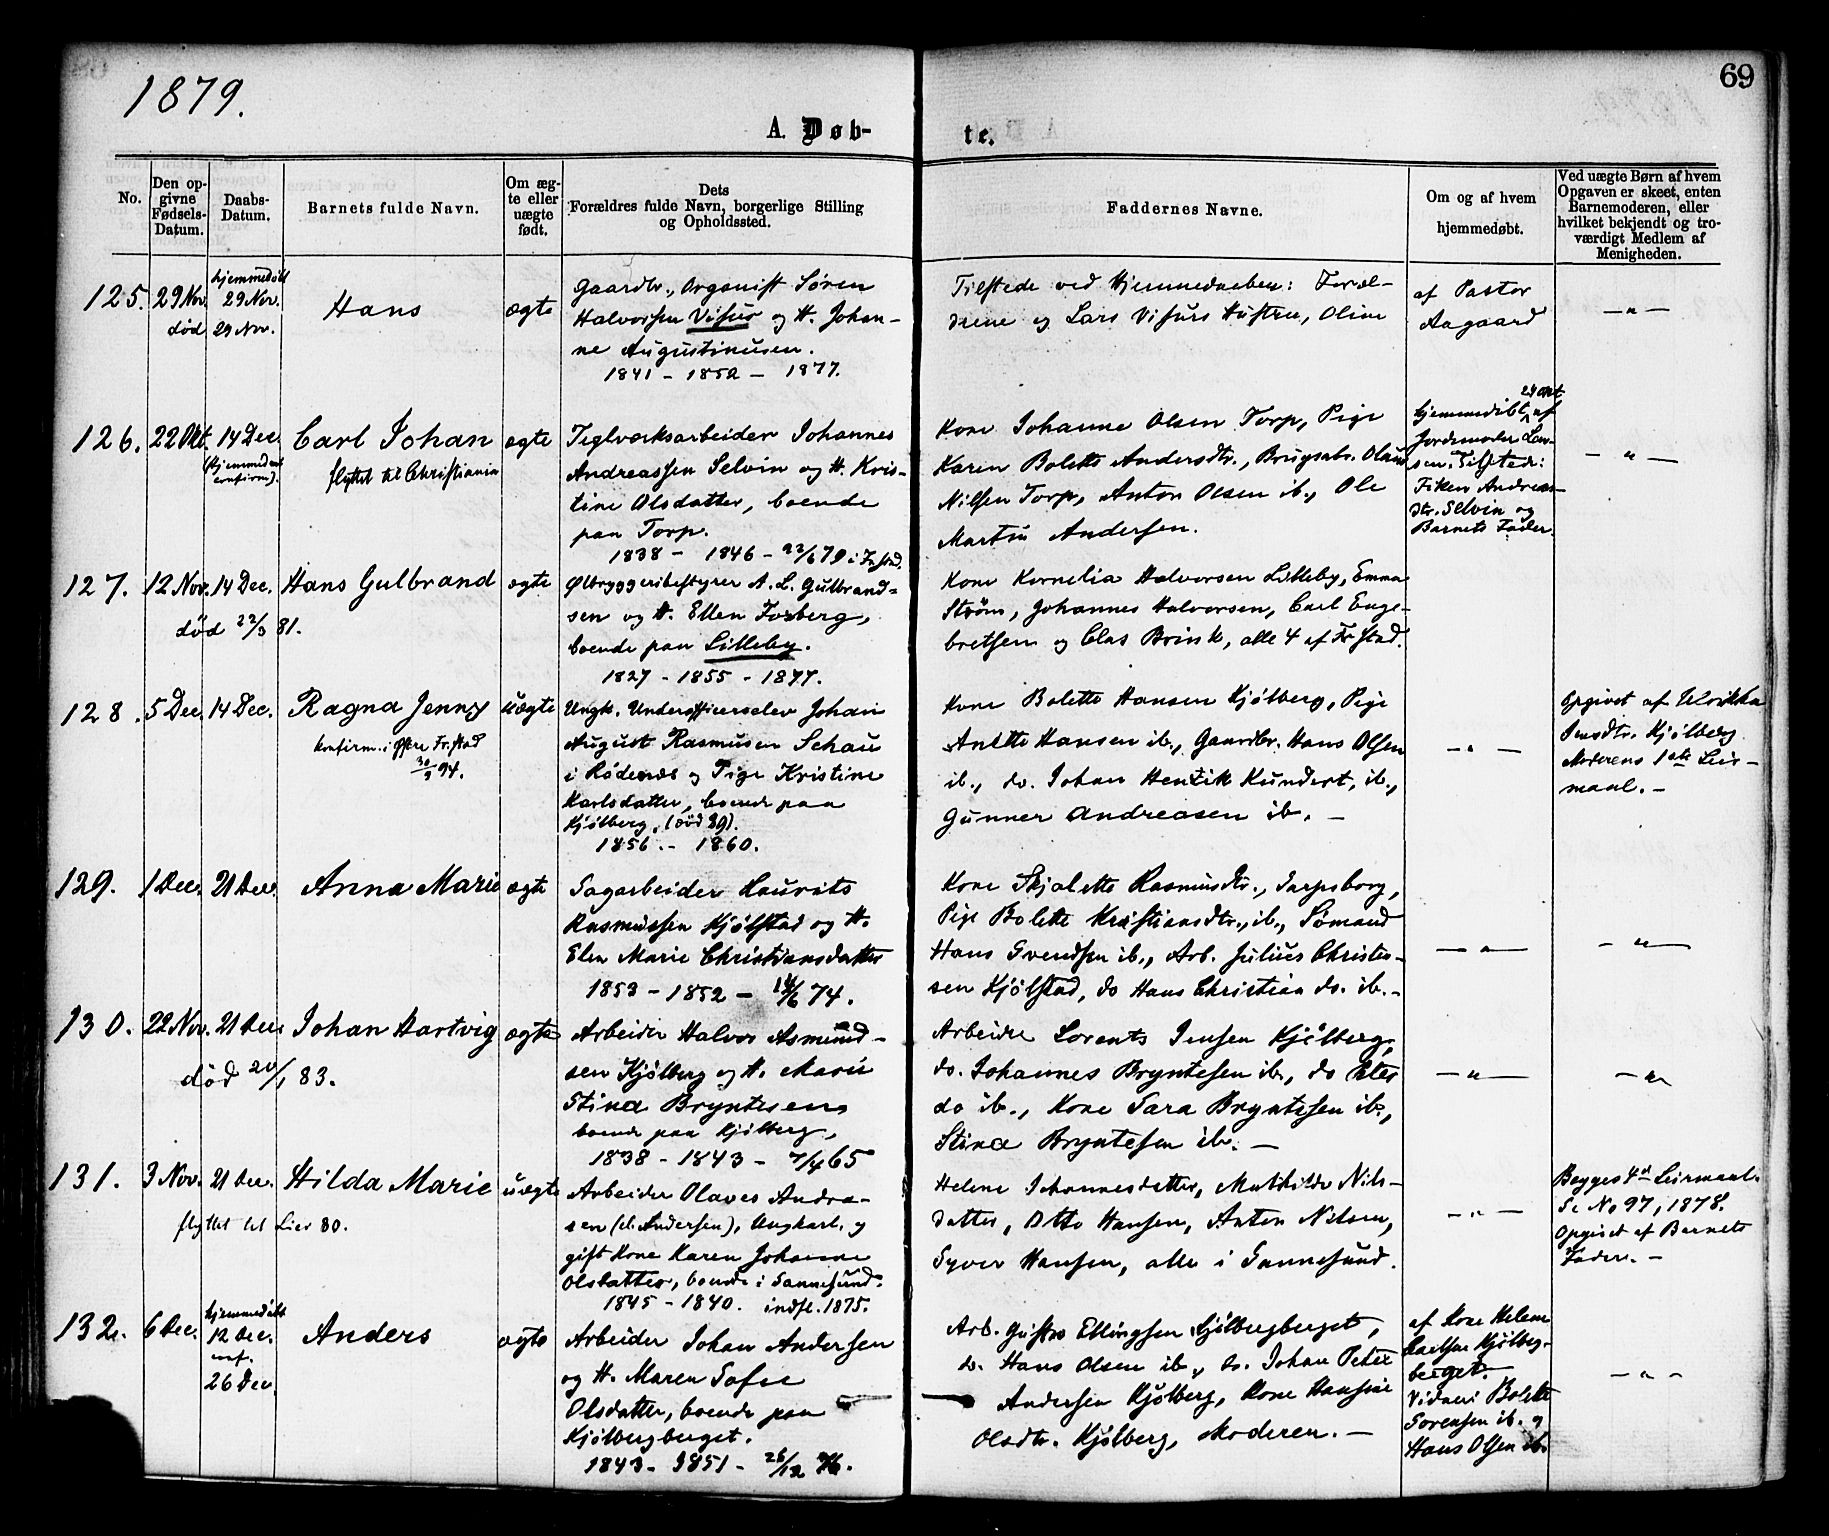 1879.
69
A. Døb-
te.
No.
Den opgivne Fødsels-Datum.
Daabs-Datum.
Barnets fulde Navn.
Om ægte eller uægte født.
Dets Forældres fulde Navn, borgerlige Stilling og Opholdssted.
Faddernes Navne.
Om og af hvem hjemmedøbt.
Ved uægte Børn af hvem Opgaven er skeet, enten Barnemoderen, eller hvilket bekjendt og troværdigt Medlem af Menigheden.
125. 29 Nov. hjemmedøbt 29 Nov. Hans ægte
død 29 Nov.
Gaardbr., Organist Søren
Halvorsen Visur og H. Johan-
ne Augustinusen.
1841 - 1852 - 1877.
Tilstede ved Hjemmedaaben: Foræl-
drene og Lars Visurs Hustru, Oline
af Pastor
Aagaard
— " —
126. 22 Okt. 14 Dec. Carl Johan ægte
(hjemmedøbt confirm).
flyttet til Christiania
Teglværksarbeider Johannes
Andreassen Selvin og H. Kris-
tine Olsdatter, boende
paa Torp.
1838 - 1846 - 22/6 79 i Fr.stad.
Kone Johanne Olsen Torp, Pige
Karen Bolette Andersdtr., Brugsarb. Olaus
Nilsen Torp, Anton Olsen ib., Ole
Martin Andersen.
24 Okt
hjemmedøbt af
Jordemoder Lar-
sen. Tilstede:
Fiken Andreas-
dtr. Selvin og
Barnets Fader.
— " —
127. 12 Nov. 14 Dec. Hans Gulbrand ægte
død 22/3 81.
Ølbryggeribestyrer A. L. Gulbrand-
sen og H. Ellen Forberg,
boende paa Lilleby.
1827 - 1855 - 1877.
Kone Kornelia Halvorsen Lilleby, Emma
Strøm, Johannes Halvorsen, Carl Enge-
bretsen og Clas Brink, alle 4 af Fr.stad.
128. 5 Dec. 14 Dec. Ragna Jenny uægte
konfirm. i Østre Fr.stad
30/9 94.
Ungk. Underofficerselev Johan
August Rasmusen Schau
i Rødenæs og Pige Kristine
Karlsdatter, boende paa
Kjølberg, (død 89).
1856. - 1860.
Kone Bolette Hansen Kjølberg, Pige
Anette Hansen ib., Gaardbr. Hans Olsen
ib., do. Johan Henrik Kundert, ib.,
Gunner Andreasen ib. —
— " —
Opgivet af Ulrikka
Jensdtr. Kjølberg
Moderens 1ste Leir-
maal. —
129. 1 Dec. 21 Dec. Anna Marie ægte
Sagarbeider Laurits
Rasmussen Kjølstad og H.
Elen Marie Christiansdatter
1853 - 1852 - 14/6 74.
Kone Skjalette Rasmusdtr., Sarpsborg,
Pige Bolette Kristiansdtr., ib., Sømand
Hans Svendsen ib., Arb. Julius Christen-
sen Kjølstad, do Hans Christian do. ib. -
— " —
— " —
130. 22 Nov. 21 Dec. Johan Hartvig ægte
død 20/1 83.
Arbeider Halvor Asmund-
sen Kjølberg og H. Marie
Stina Bryntesen
boende paa Kjølberg,
1838 - 1843 - 7/4 65
Arbeider Lorents Jensen Kjølberg,
do. Johannes Bryntesen ib., do Peter
do ib., Kone Sara Bryntesen ib.,
Stina Bryntesen ib. —
— " —
— " —
131. 3 Nov. 21 Dec. Hilda Marie uægte
flyttet til Lier 80.
Arbeider Olaves Andrea-
sen (el. Andersen), Ungkarl. og
gift Kone Karen Johanne
Olsdatter, boende i Sannesund.
1845 - 1840. indfl. 1875.
Helene Johannesdatter, Mathilde Nils-
datter, Otto Hansen, Anton Nilsen,
Syver Hansen, alle i Sannesund.
— " —
Begges 4de Leirmaal.
Se No 97, 1878.
Opgivet af Barnets
Fader. —
132. 6 Dec. hjemmedøbt 12 Dec. conf. 26 Dec Anders ægte
Arbeider Johan Andersen
og H. Maren Sofie
Olsdatter, boende paa
Kjølbergberget.
1843 - 1851 - 26/12 76.
Arb. Gustav Ellingsen Kjølbergberget,
do. Hans Olsen ib., do. Johan Peter
Andersen Kjølberg, Kone Hansine
Olsdtr. Kjølberg, Moderen. —
af Kone Helene
Carlsen Kjølberg-
berget.
Vidner: Bolette
Sørensen ib. og
Hans Olsen ib.
— " —